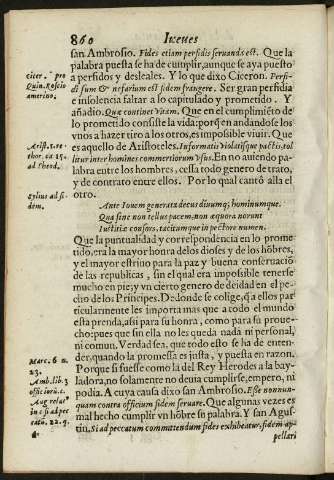 860 Iueues
san Ambrosio. Fides etiam perfidis seruanda est. Que la
palabra puesta se ha de cumplir, aunque se aya puesto
a perfidos y desleales. Y lo que dixo Ciceron. Perfi-
di sum & nefarium est fidem frangere. Ser gran perfidia
e insolencia faltar a lo capitulado y prometido. Y
añadio. Quæ continet vitam. Que en el cumplimiẽto de
lo prometido consiste la vida: porq̃ en andandose los
vnos a hazer tiro a los otros, es impossible viuir. Que
es aquello de Aristoteles. Informatis violatisque pactis, tol
litur inter homines commertiorum vsus. En no auiendo pa-
labra entre los hombres, cessa todo genero de trato,
y de contrato entre ellos. Por lo qual cantò alla el
otro.
Ante Iouem generata decus diuumq; hominumque.
Qua sine non tellus pacem, non æquora norunt
Iustitiæ consors, tacitumque in pectore numen.
Que la puntualidad y correspondencia en lo prome
tido, era la mayor honra de los dioses y de los hõbres,
y el mayor estriuo para la paz y buena conseruaciõ
de las republicas, sin el qual era impossible tenerse
mucho en pie; y vn cierto genero de deidad en el pe-
cho de los Principes. De donde se colige, q̃ a ellos par
ticularmente les importa mas que a todo el mundo
esta prenda, assi para su honra, como para su proue-
cho: pues que sin ella no les queda nada ni personal,
ni comun. Verdad sea, que todo esto se ha de enten-
der, quando la promessa es justa, y puesta en razon.
Porque si fuesse como la del Rey Herodes a la bay-
ladora, no solamente no deuia cumplirse, empero, ni
podia. A cuya causa dixo san Ambrosio. Esse nonnun-
quam contra officium fidem seruare. Que algunas vezes es
mal hecho cumplir vn hõbre su palabra. Y san Agus-
tin. Si ad peccatum committendum fides exhibeatur, fidem ap
pellari
cicer. pro
Quin. Roscio
amerino.
Arist. 1. re-
thor. ca. 15.
ad Theod.
Sylius ad fi-
dem.
Marc. 6 n.
23.
Amb. lib. 3
offic
Aug relat'
in c si ad pec
catũ. 22. q.